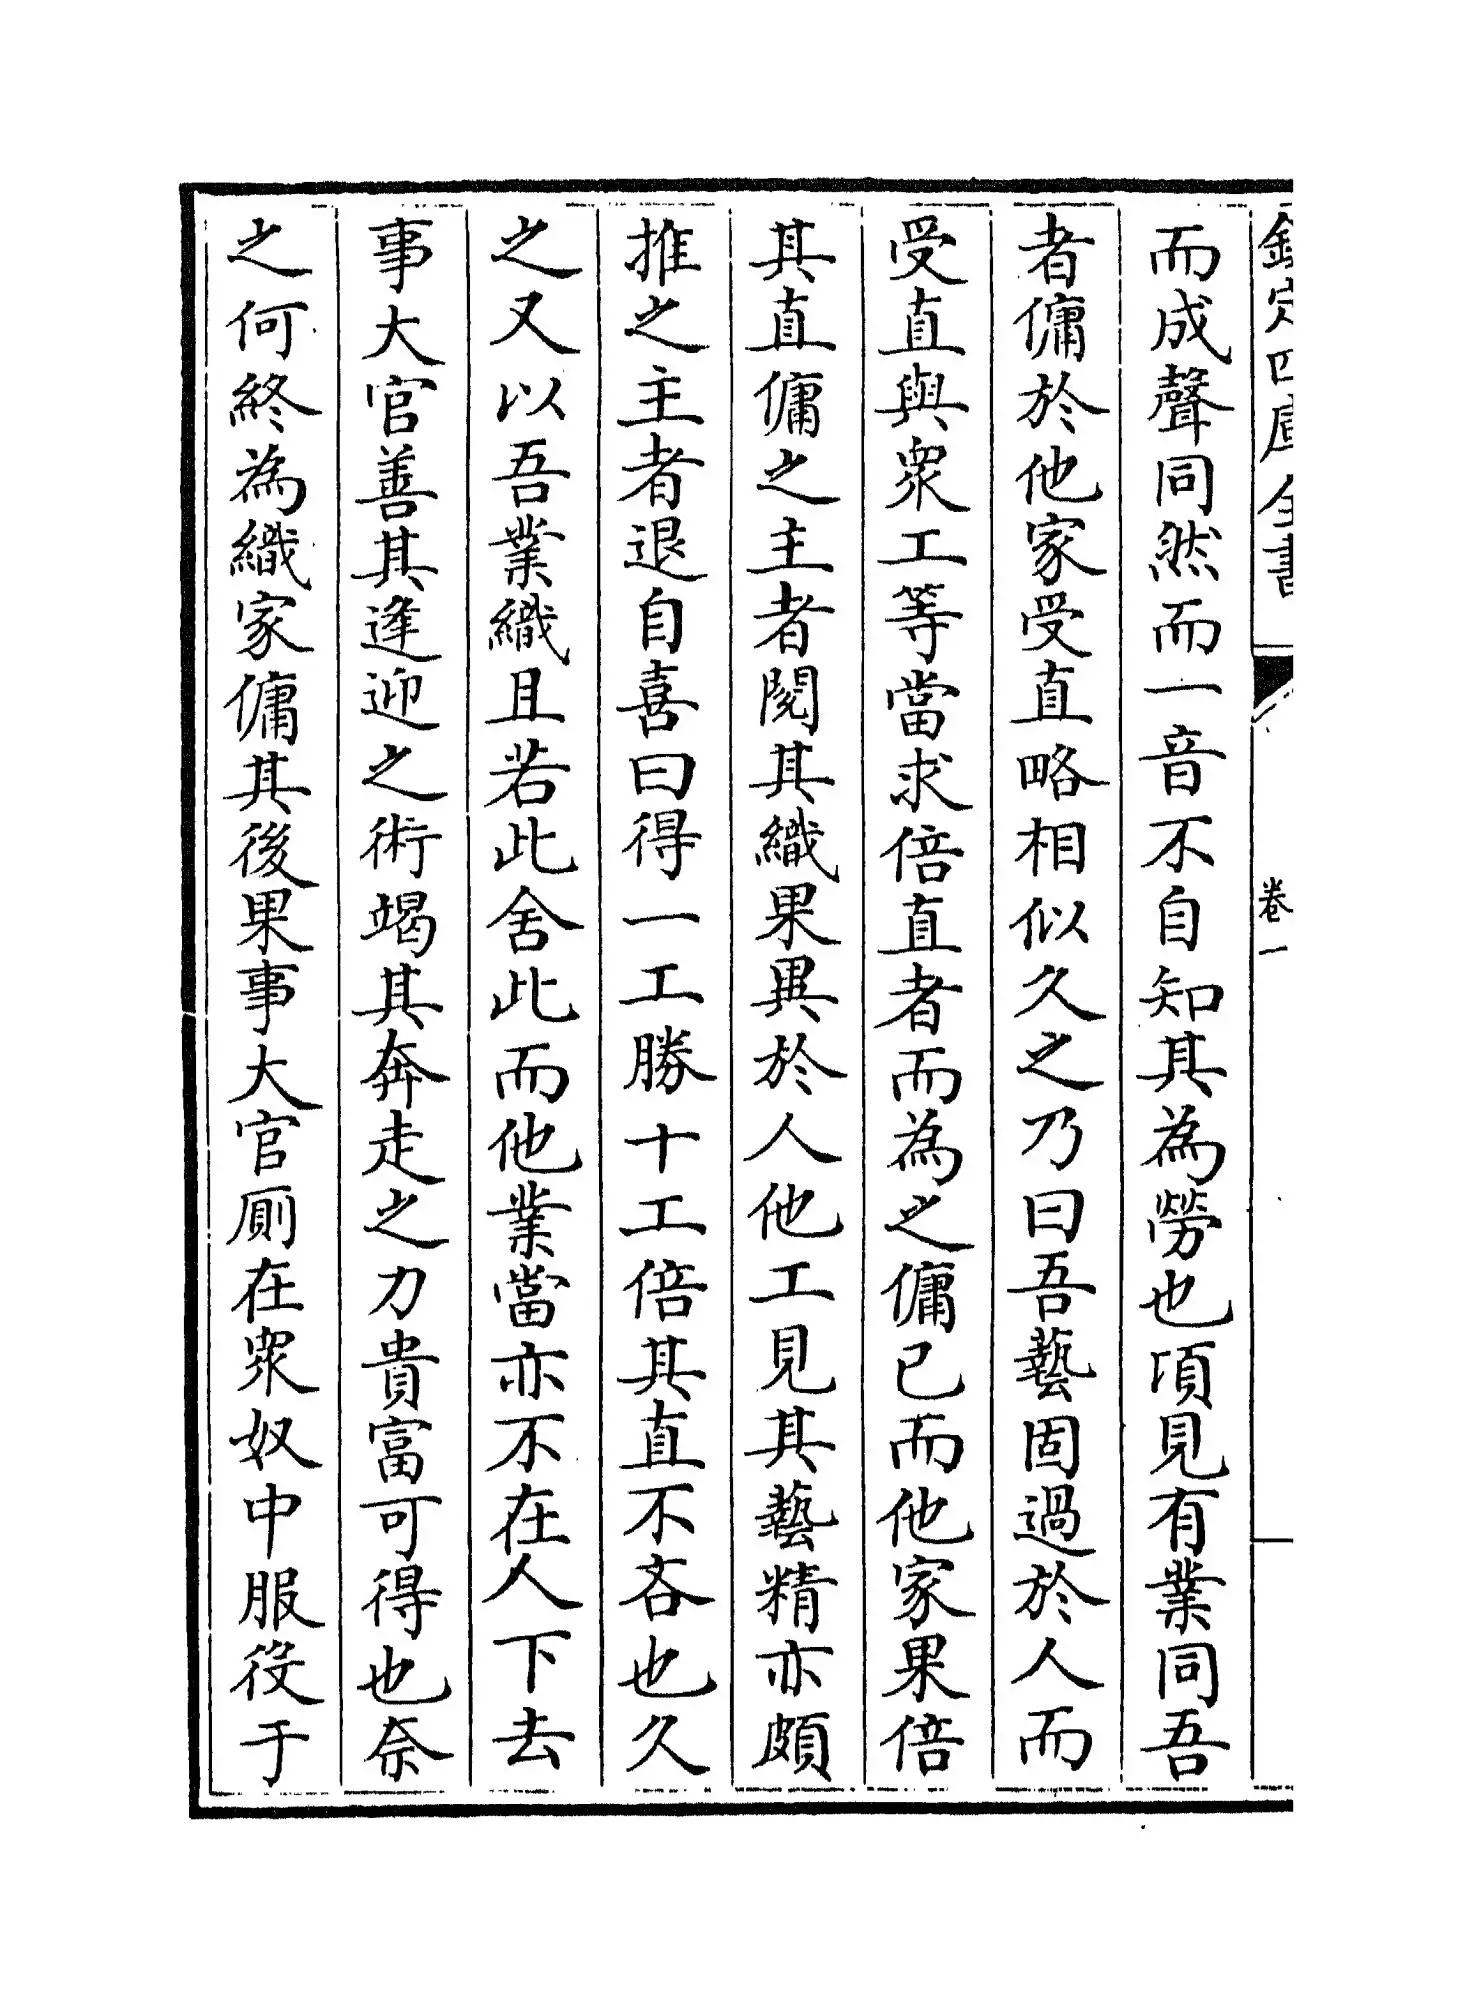 欽定四庫全書
卷一
而成聲同然而一音不自知其為勞也項見有業同吾
者傭於他家受直略相似久之乃曰吾藝固過於人而
受直與衆工等當求倍直者而為之傭已而他家果倍
其直傭之主者閱其織果異於人他工見其藝精亦頗
推之主者退自喜曰得一工勝十工倍其直不吝也久
之又以吾業織且若此舍此而他業當亦不在人下去
事大官善其逢迎之術竭其奔走之力貴富可得也奈
之何終為織家傭其後果事大官厠在衆奴中服役于